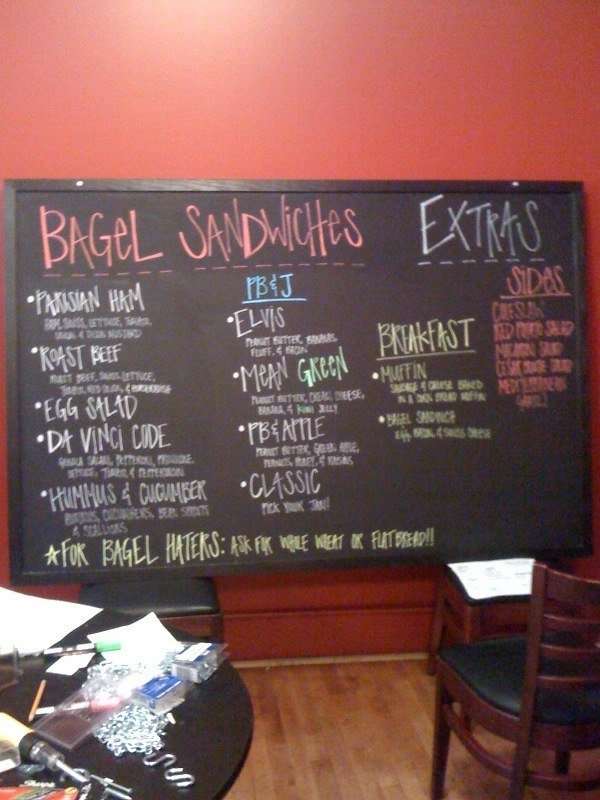 BAGEL SANDWICHES
• PARISIAN HAM
LETTUCE, TOMATO,
& DIJON MUSTARD
• ROAST BEEF
ROAST BEEF, SWISS, LETTUCE,
TOMATO, RED ONION, & HORSERADISH
• EGG SALAD
• DA VINCI CODE
GENOA SALAMI, PEPPERONI, PROVOLONE,
LETTUCE, TOMATO & PEPPERONCINI
• HUMMUS & CUCUMBER
HUMMUS, CUCUMBERS, BEAN SPROUTS
& SCALLIONS
PB&J
• ELVIS
PEANUT BUTTER, BANANAS,
FLUFF, & BACON
• MEAN GREEN
PEANUT BUTTER, CREAM CHEESE,
BANANA, & KIWI JELLY
• PB & APPLE
PEANUT BUTTER, GREEN APPLE,
PEANUTS, HONEY, & RAISINS
• CLASSIC
PICK YOUR JAM!
☆ FOR BAGEL HATERS: ASK FOR WHOLE WHEAT OR FLATBREAD!!
EXTRAS
BREAKFAST
• MUFFIN
SAUSAGE & CHEESE BAKED
IN A CORN BREAD MUFFIN
• BAGEL SANDWICH
EGG, BACON, & SWISS CHEESE
SIDES
COLESLAW
RED POTATO SALAD
MACARONI SALAD
MEDITERRANEAN